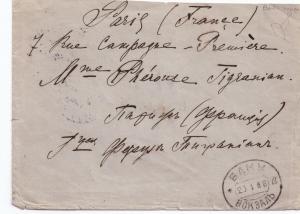 Paris (France)
7, Rue Campagne-Première.
Mme Phérouse Tigranian.
Парижъ (Франція)
Тиграніанъ.
БАКУ
ВОКЗАЛЪ